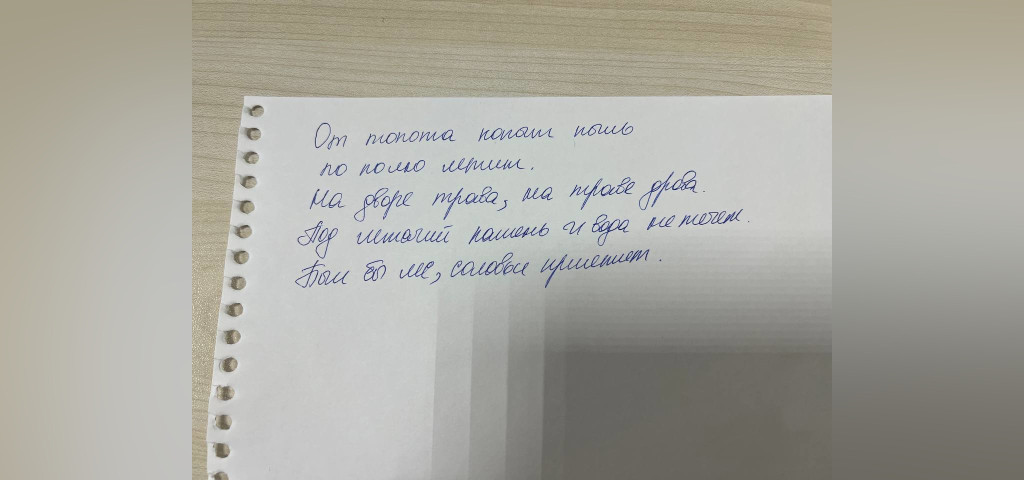 От топота копыт пыль
по полю летит.
На дворе трава, на траве дрова.
Под лежачий камень и вода не течет.
Был бы лес, соловьи прилетят.